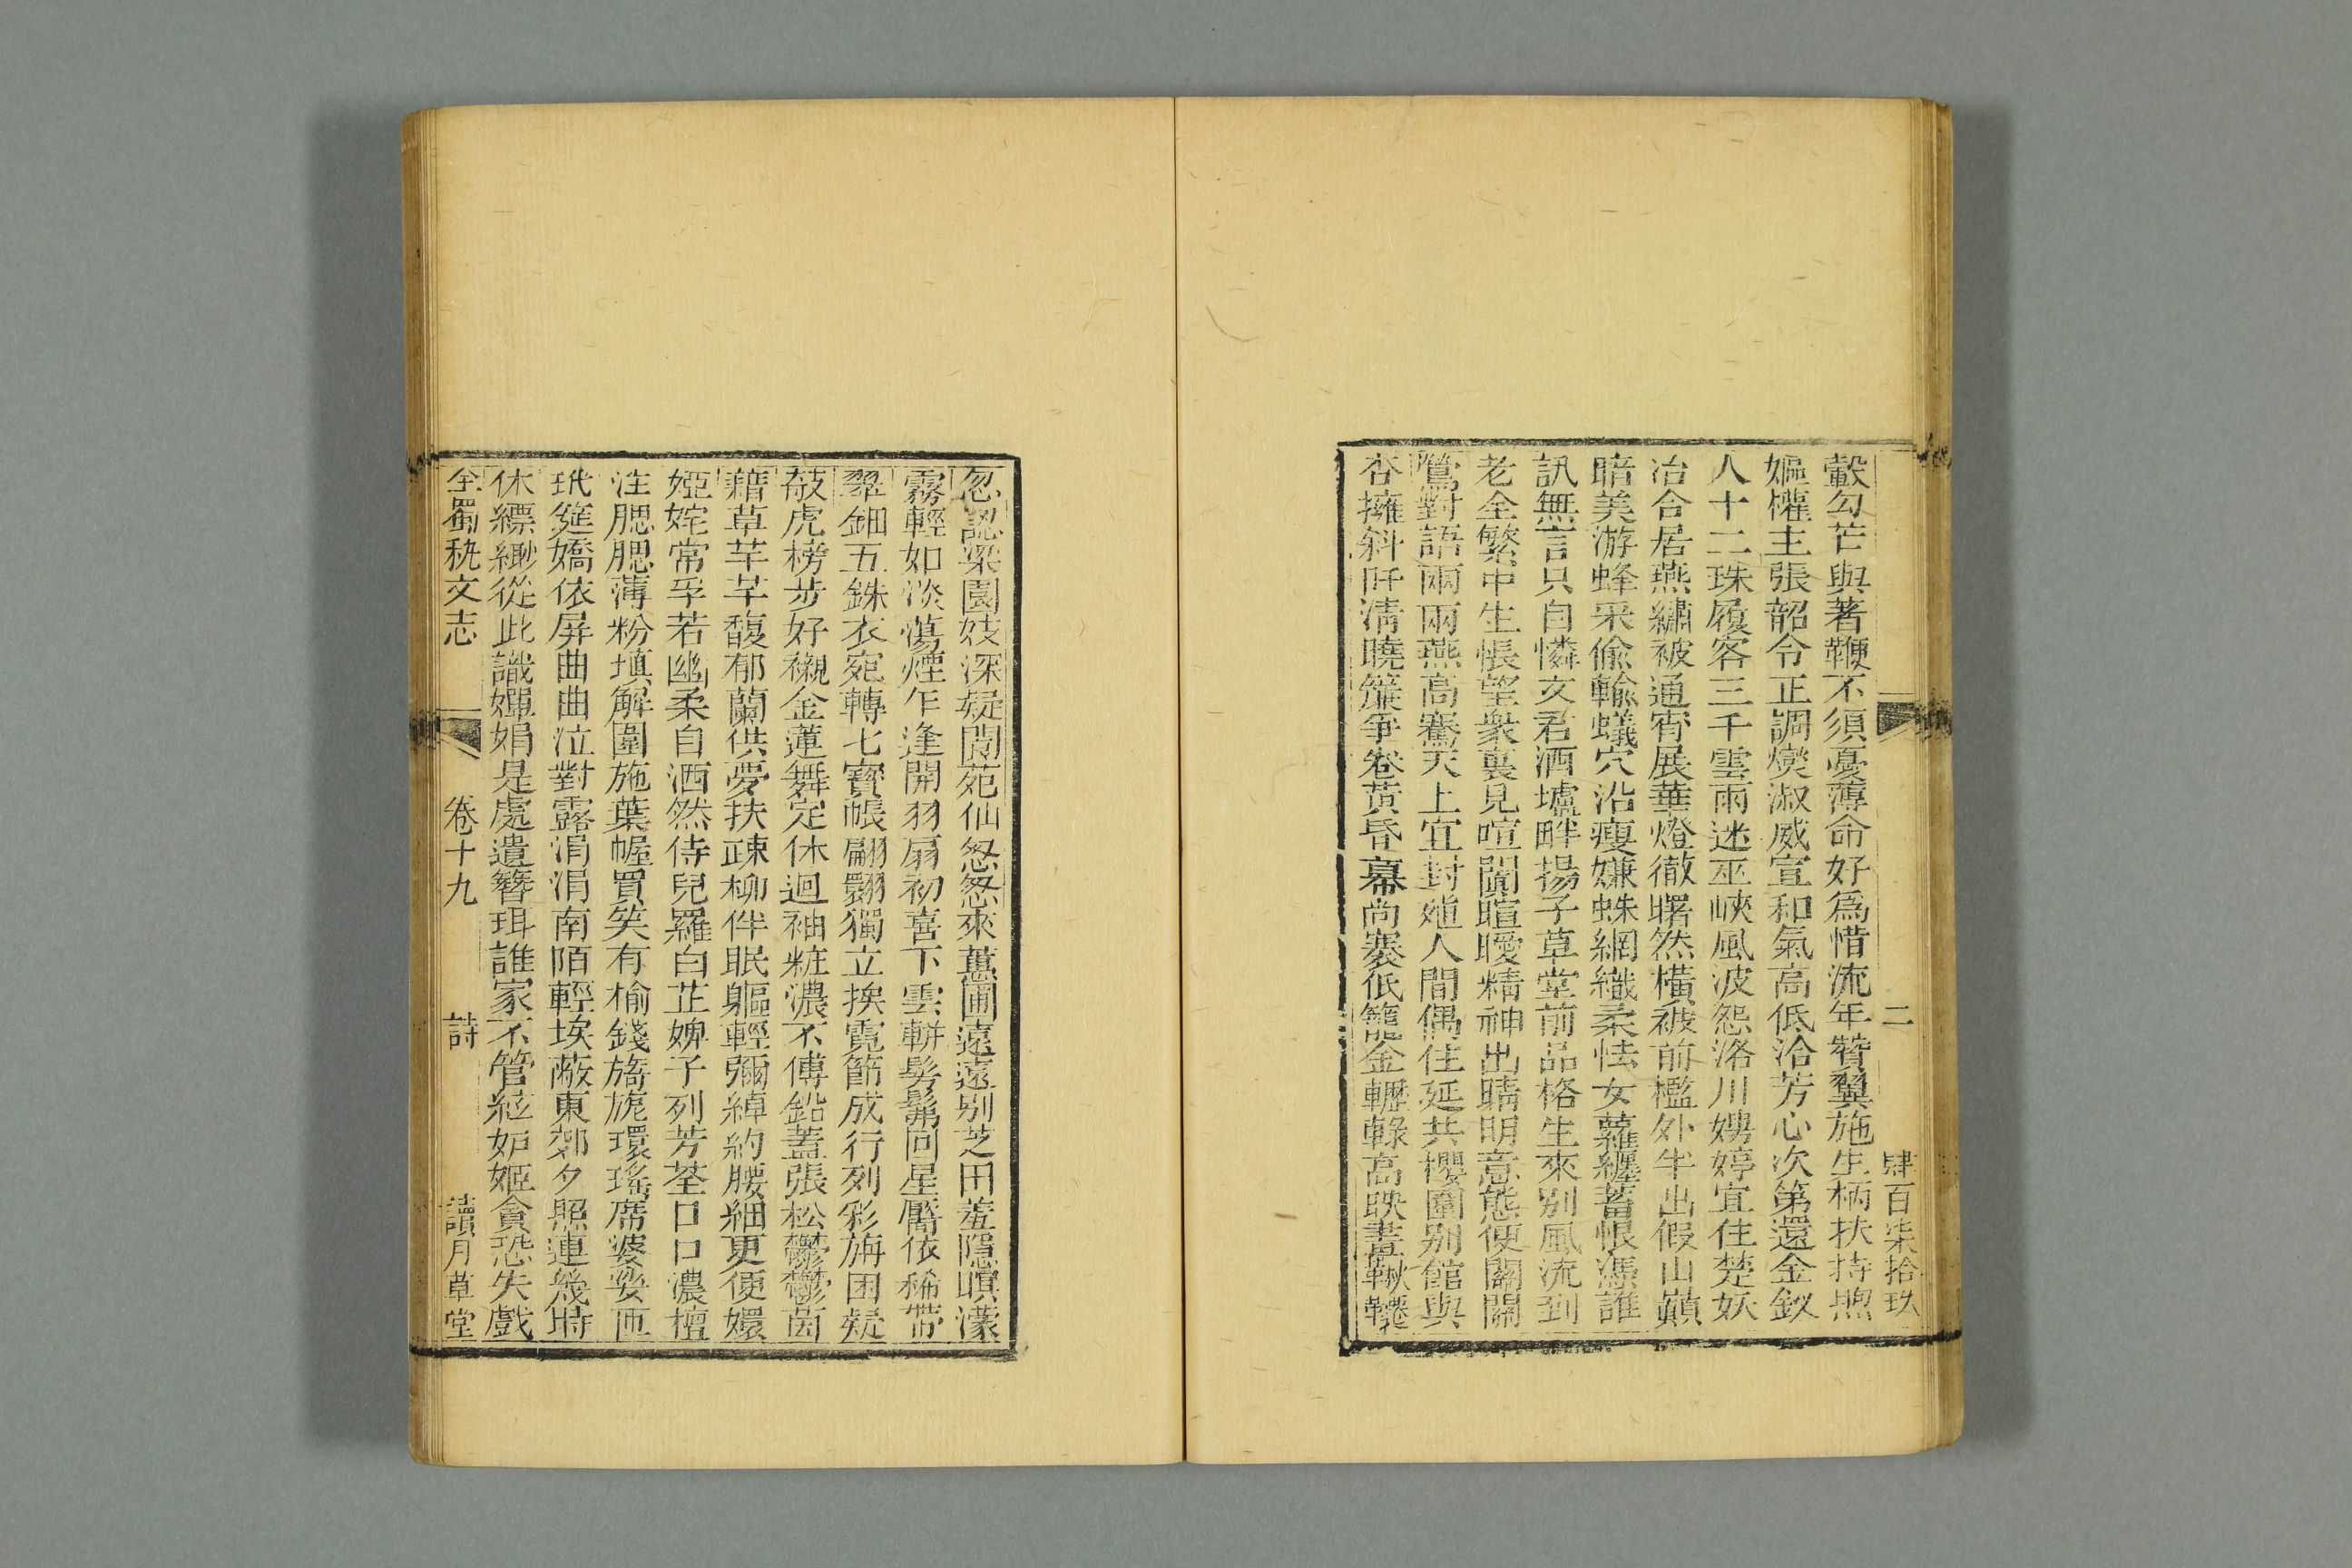 二 肆百柒拾玖
轂勾芒與著鞭不須憂薄命好爲惜流年贊翼施生柄扶持煦
嫗權主張韶令正調燮淑威宣和氣高低洽芳心次第還金釵
人十二珠履客三千雲雨迷巫峽風波怨洛川娉婷宜住楚妖
冶合居燕繡被通宵展華燈徹曙然橫被前檻外半出假山巔
暗美游蜂采偸輸蟻穴沿瘦嫌蛛網織柔怯女蘿纏蓄恨憑誰
訊無言只自憐文君洒壚畔揚子草堂前品格生來别風流到
老全繁中生悵望衆裏見喧闐暄曖精神出晴明意態便關關
鶯對語兩兩燕高騫天上宜封殖人間偶住延共櫻圍别館與
杏擁斜阡淸曉簾爭卷黃昏幕尚褰低籠金轣轆高映畫鞦韆
忽認梁園妓深疑閬苑仙怱怱來蕙圃遠遠别芝田羞隱暝濛
霧輕如淡蕩煙乍逢開羽扇初喜下雲軿髣髴回星靨依稀帶
翠鈿五銖衣宛轉七寶帳翩翾獨立挨霓節成行列彩旃困疑
敧虎榜步好襯金蓮舞定休迴袖粧濃不傅鉛蓋張松鬱鬱茵
藉草芊芊馥郁蘭供夢扶疎柳伴眠軀輕彌綽約腰細更便嬛
婭姹常孚若幽柔自洒然侍兒羅白芷婢子列芳荃口口濃檀
注腮腮薄粉塡解圍施葉幄買笑有榆錢旖旎環瑤席婆娑匝
玳筵嬌依屏曲曲泣對露涓涓南陌輕埃蔽東郊夕照連幾時
休縹緲從此識嬋娟是處遺簪珥誰家不管絃妒姬貪恐失戲
全蜀秇文志 卷十九 詩 讀月草堂